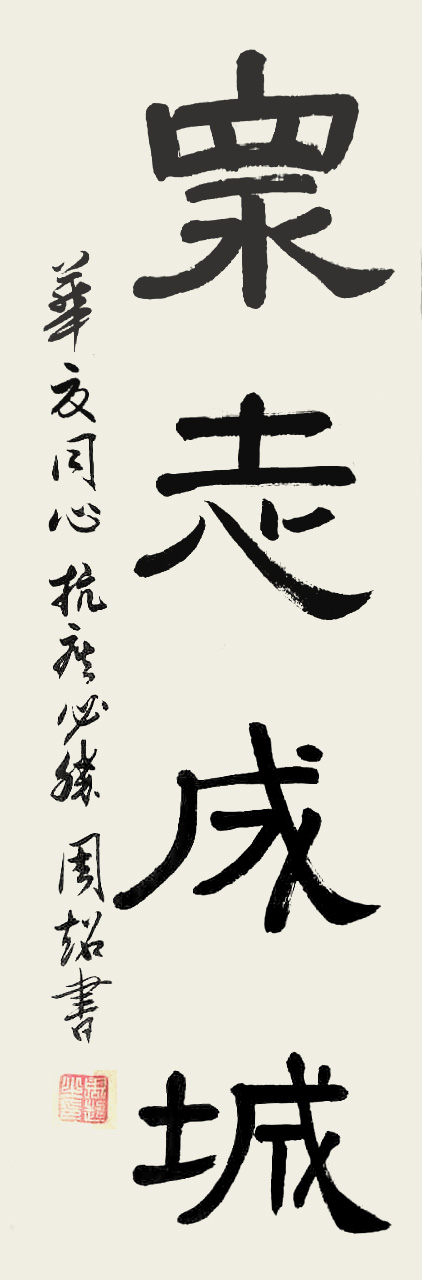 衆志成城
華夏同心 抗疫必勝 周超書